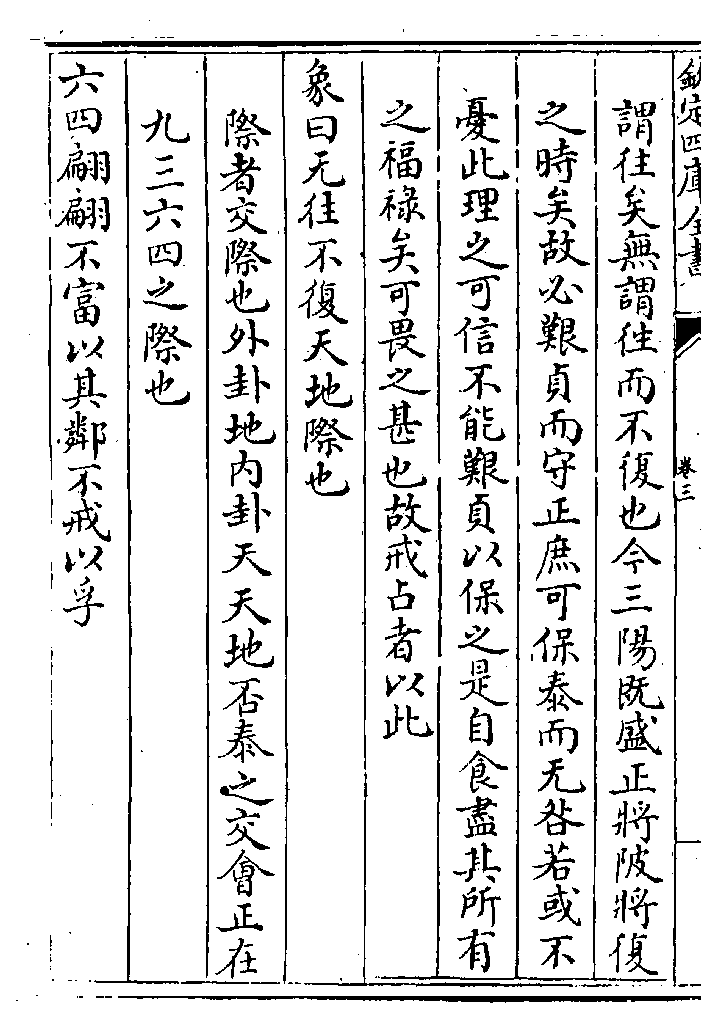 欽定四庫全書
卷三
謂往矣無謂往而不復也今三陽既盛正將陂將復
之時矣故必艱貞而守正庶可保泰而无咎若或不
憂此理之可信不能艱貞以保之是自食盡其所有
之福祿矣可畏之甚也故戒占者以此
象曰无往不復天地際也
際者交際也外卦地内卦天天地否泰之交會正在
九三六四之際也
六四翩翩不富以其鄰不戒以孚